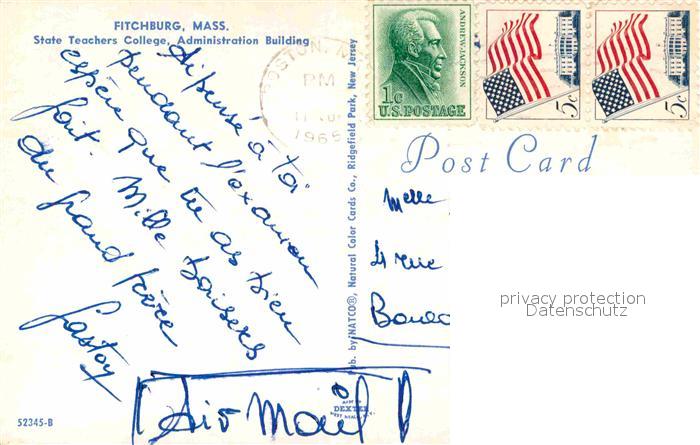 FITCHBURG, MASS.
State Teachers College, Administration Building
pensé à toi
pendant l'examen
espère que tu as bien
fait. Mille baisers
du grand frère
Gaston
Air Mail
52345-B
MADE BY
DEXTER
WEST NYACK, N.Y.
Pub. by NATCO®, Natural Color Cards Co., Ridgefield Park, New Jersey
BOSTON, M
PM
1965
1c
U.S. POSTAGE
ANDREW JACKSON
5c
5c
Post Card
Melle
4 rue
privacy protection
Datenschutz